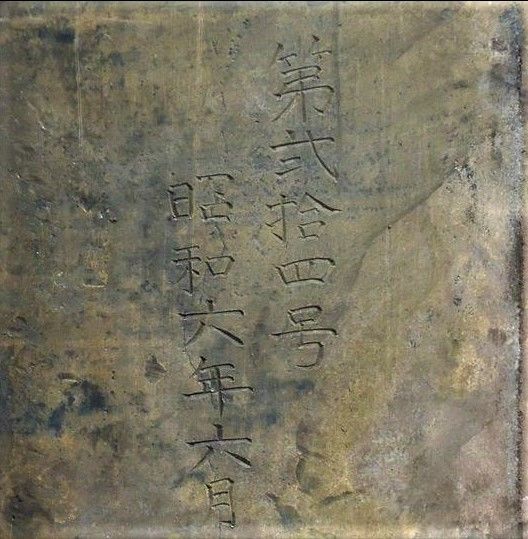 第弐拾四号
昭和六年六月